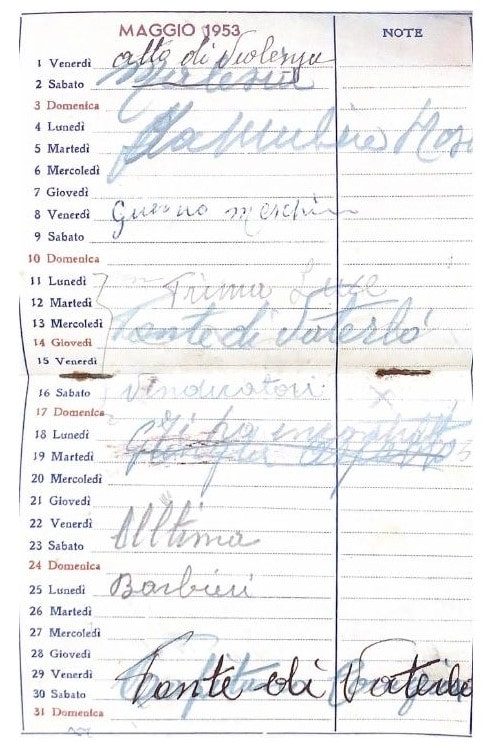 MAGGIO 1953
NOTE
1 Venerdì atto di Violenza
2 Sabato
3 Domenica
4 Lunedì
5 Martedì
6 Mercoledì
7 Giovedì
8 Venerdì Guerino meschino
9 Sabato
10 Domenica
11 Lunedì Prima Luce
12 Martedì
13 Mercoledì Ponte di Vaterlò
14 Giovedì
15 Venerdì
16 Sabato Vendicatori X
17 Domenica
18 Lunedì
19 Martedì
20 Mercoledì
21 Giovedì
22 Venerdì
23 Sabato Ulltima
24 Domenica
25 Lunedì Barbieri
26 Martedì
27 Mercoledì
28 Giovedì
29 Venerdì
30 Sabato Ponte di Vaterlo
31 Domenica